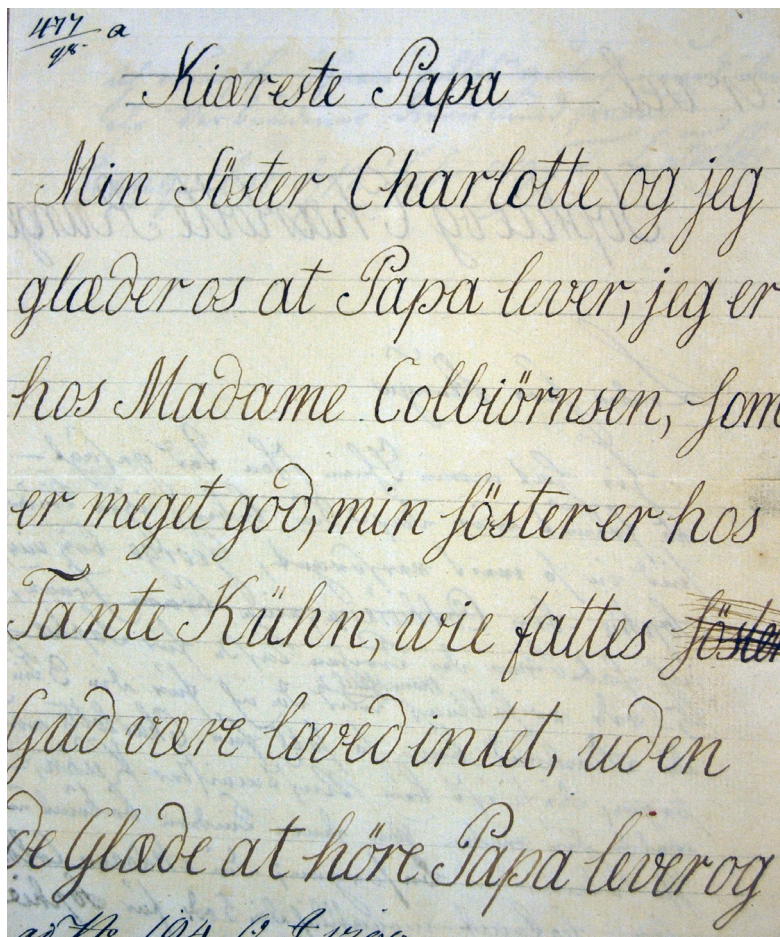 477 a
Kiæreste Papa
Min Söster Charlotte og jeg
glæder os at Papa lever, jeg er
hos Madame Colbiörnsen, som
er meget god, min söster er hos
Tante Kühn, wie fattes söster
Gud være loved intet, uden
de Glæde at höre Papa lever og